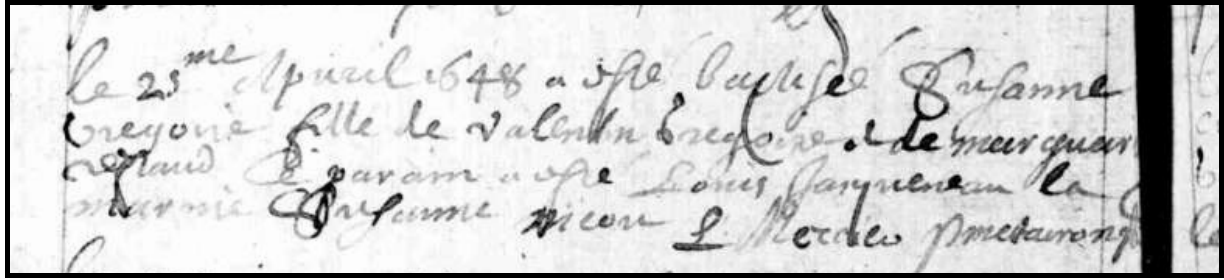 le 23me Apuril 1648 a esté baptisée Susanne
Gregoire fille de Valentin Gregoire et de marguar
le parain a esté Louis Jacqueneau la
marine Susanne nicou